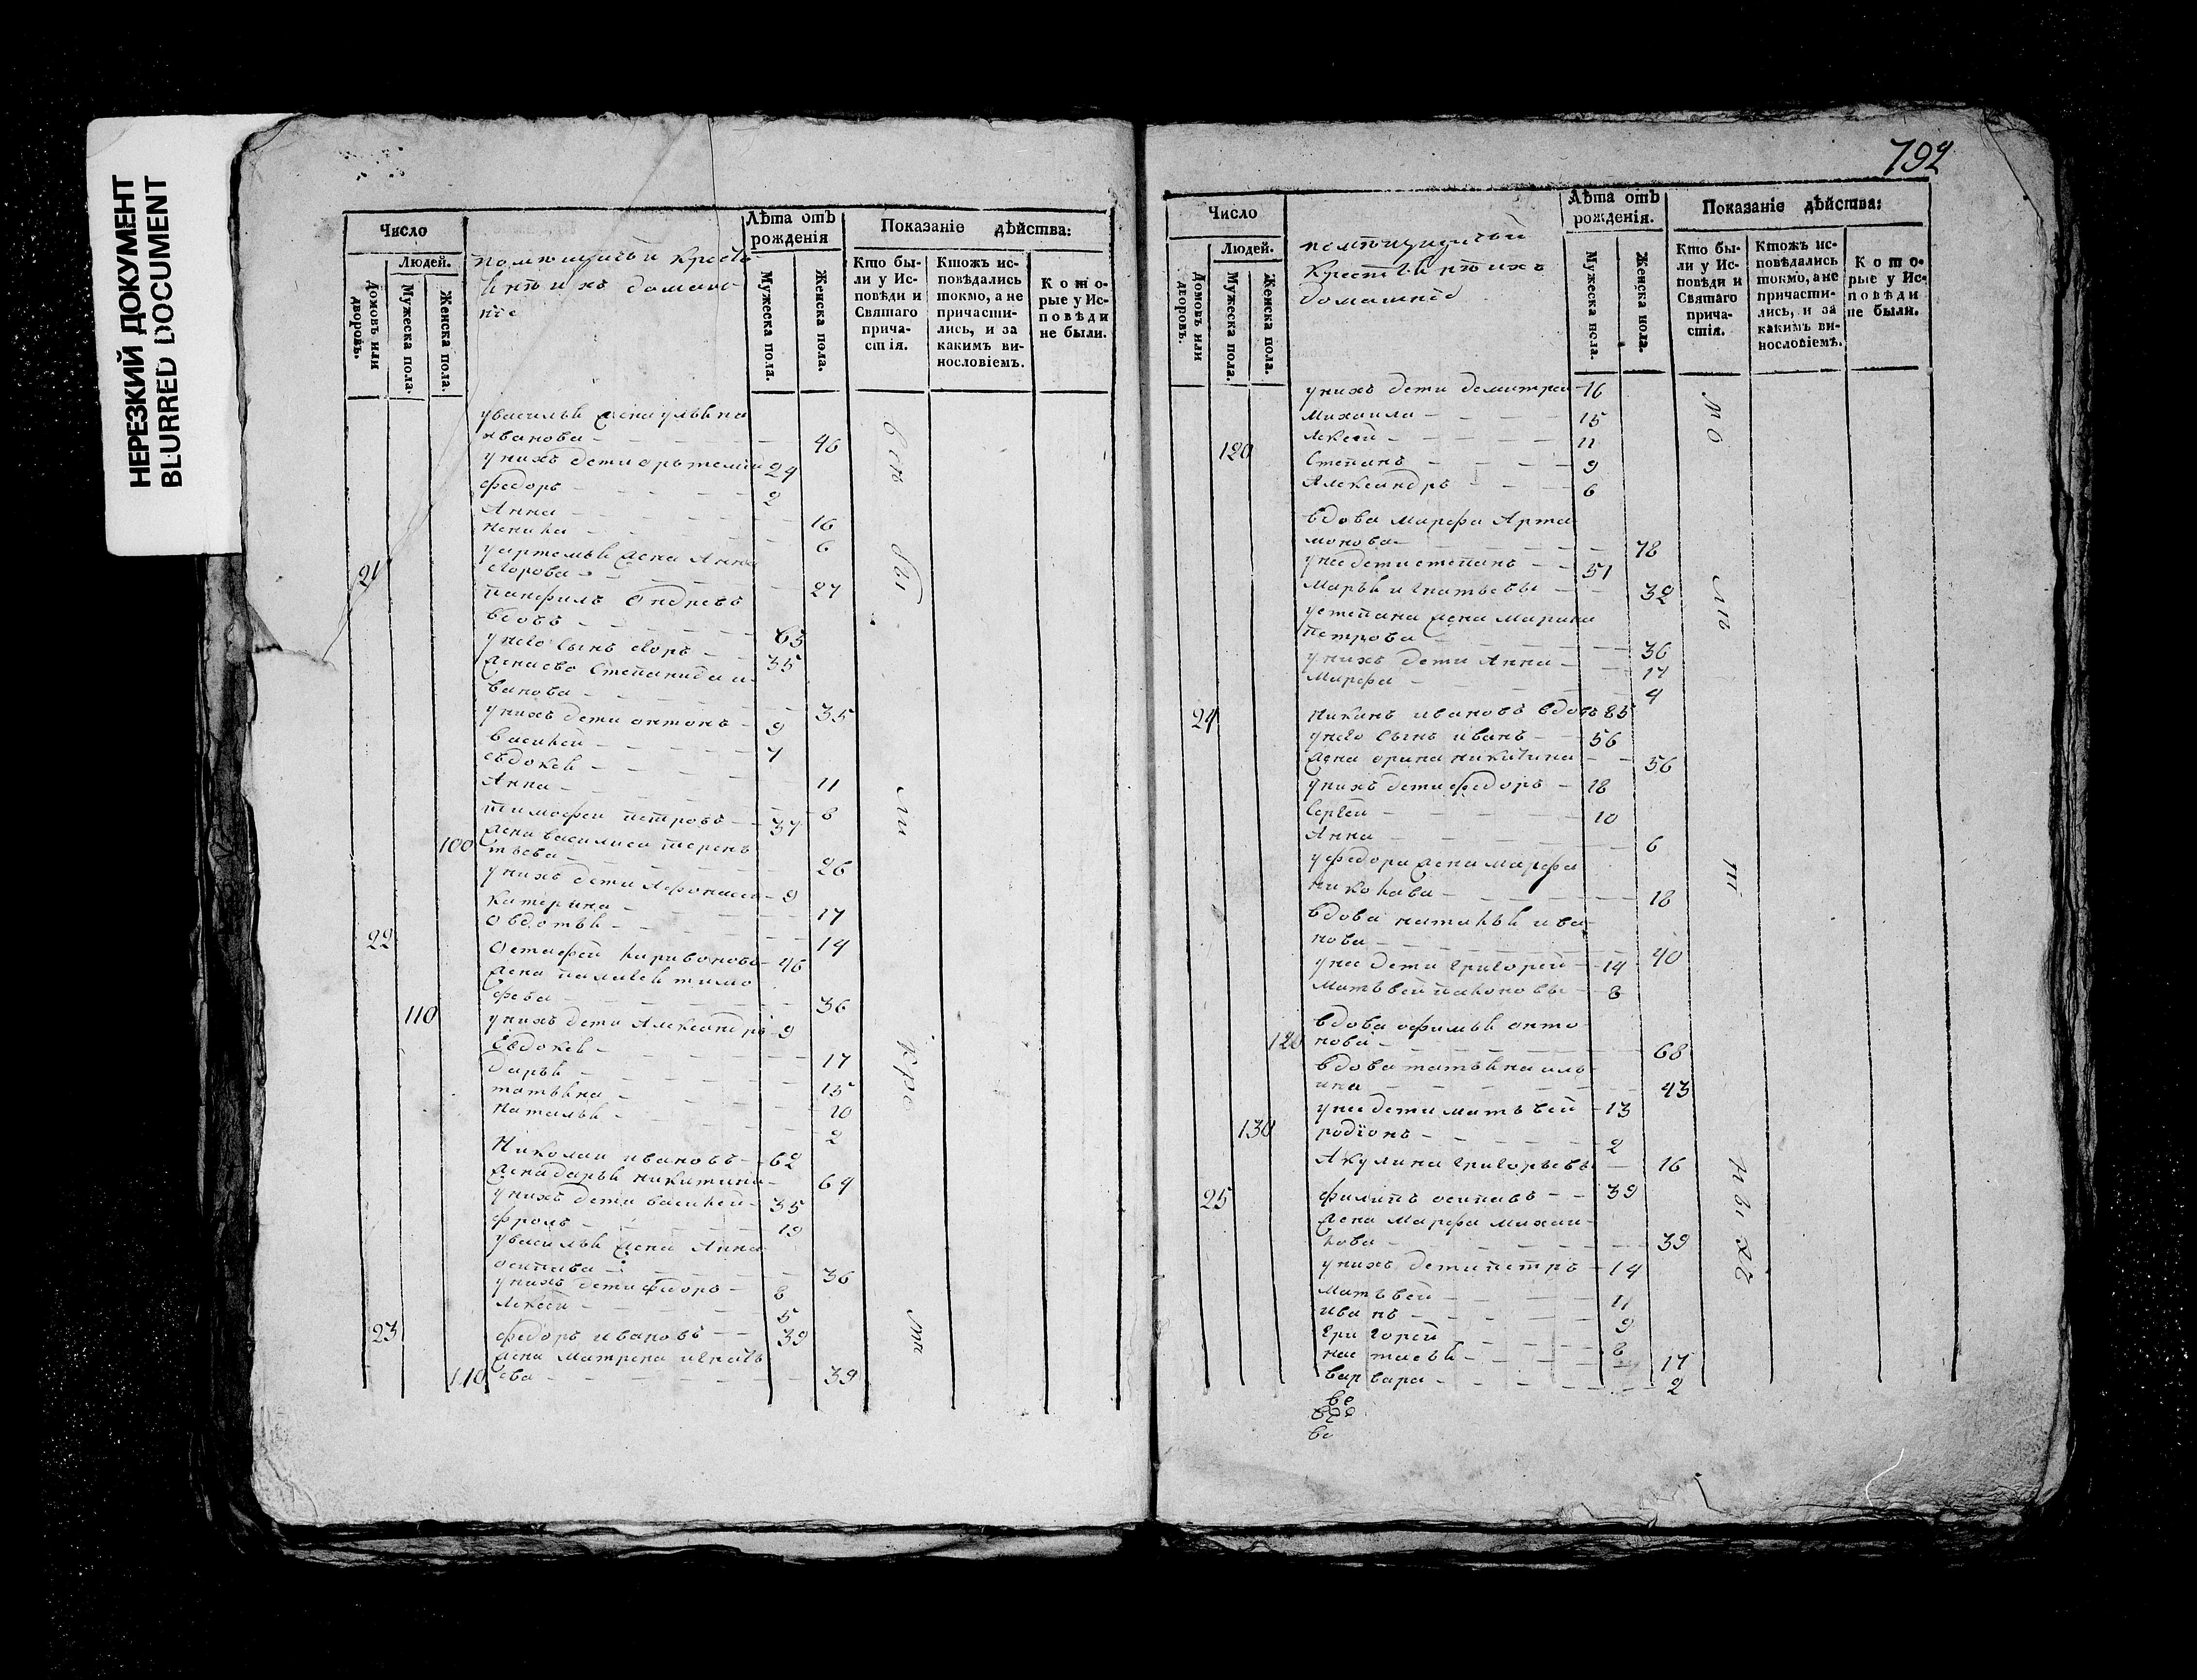 НЕРЕЗКИЙ ДОКУМЕНТ
BLURRED DOCUMENT
Число
Людей.
Домовъ или дворовъ.
Мужеска пола.
Женска пола.
помѣщичьи кресть
янѣ ихъ домаш
ніе
Лѣта отъ рожденія
Мужеска пола.
Женска пола.
Показаніе дѣйства:
Кто бы-
ли у Ис-
повѣди и
Святаго
прича-
стія.
Ктожъ ис-
повѣдались
токмо, а не
причасти-
лись, и за
какимъ ви-
нословіемъ.
Кото-
рые у Ис-
повѣди
не были.
у василья жена ульяна
иванова 46
у нихъ дети артемии 24
федоръ 2
Анна 16
6
у артемья жена Анна
егорова 27
21 панфилъ Андреевъ
вдовъ 63
у него сынъ егоръ 35
жена ево Степанида и
ванова 35
у нихъ дети антонъ 9
василей 7
евдокея 11
Анна 8
тимофеи петровъ 37
100 жена василиса терень
тьева 26
у нихъ дети Афонасеи 9
катерина 17
овдотья 14
22 Остафей 46
жена палагея тимо
феева 36
110 у нихъ дети Александръ 9
Евдокея 17
дарья 15
татьяна 10
наталья 2
Николаи ивановъ 62
жена дарья никитина 64
у нихъ дети василей 35
фролъ 19
у василья жена Анна
осипава 36
у нихъ дети федоръ 8
Лексеи 5
23 федоръ ивановъ 39
жена матрена игнать
110 ева 39
792
Число
Людей.
Домовъ или дворовъ.
Мужеска пола.
Женска пола.
помѣщичьи
крестьянѣ ихъ
домашніе
Лѣта отъ рожденія.
Мужеска пола.
Женска пола.
Показаніе дѣйства:
Кто бы-
ли у Ис-
повѣди и
Святаго
прича-
стія.
Ктожъ ис-
повѣдались
токмо, а не
причасти-
лись, и за
какимъ ви-
нословіемъ.
Кото-
рые у Ис-
повѣди
не были.
у нихъ дети демитреи 16
михаила 15
Лексеи 11
120 Степанъ 9
Александръ 6
вдова марфа Арта
монова 78
у нее дети степанъ 51
марья игнатьевы 32
у степана жена марина
петрова 36
у нихъ дети Анна 17
марфа 4
24 ивановъ вдовъ 85
у него сынъ иванъ 56
жена орина никитина 56
у нихъ дети федоръ 18
Сергей 10
Анна 6
у федора жена марфа
18
вдова наталья ива
нова 40
у нее дети григорей 14
матьвей 8
вдова офимья анто
120 нова 68
вдова татьяна иль
ина 43
у нее дети матьвей 13
130 родіонъ 2
Акулина григорьевы 16
25 филипъ осипавъ 39
жена марфа михаи
лова 39
у нихъ дети петръ 14
матьвей 11
иванъ 9
григорей 8
настасья 17
варвара 2